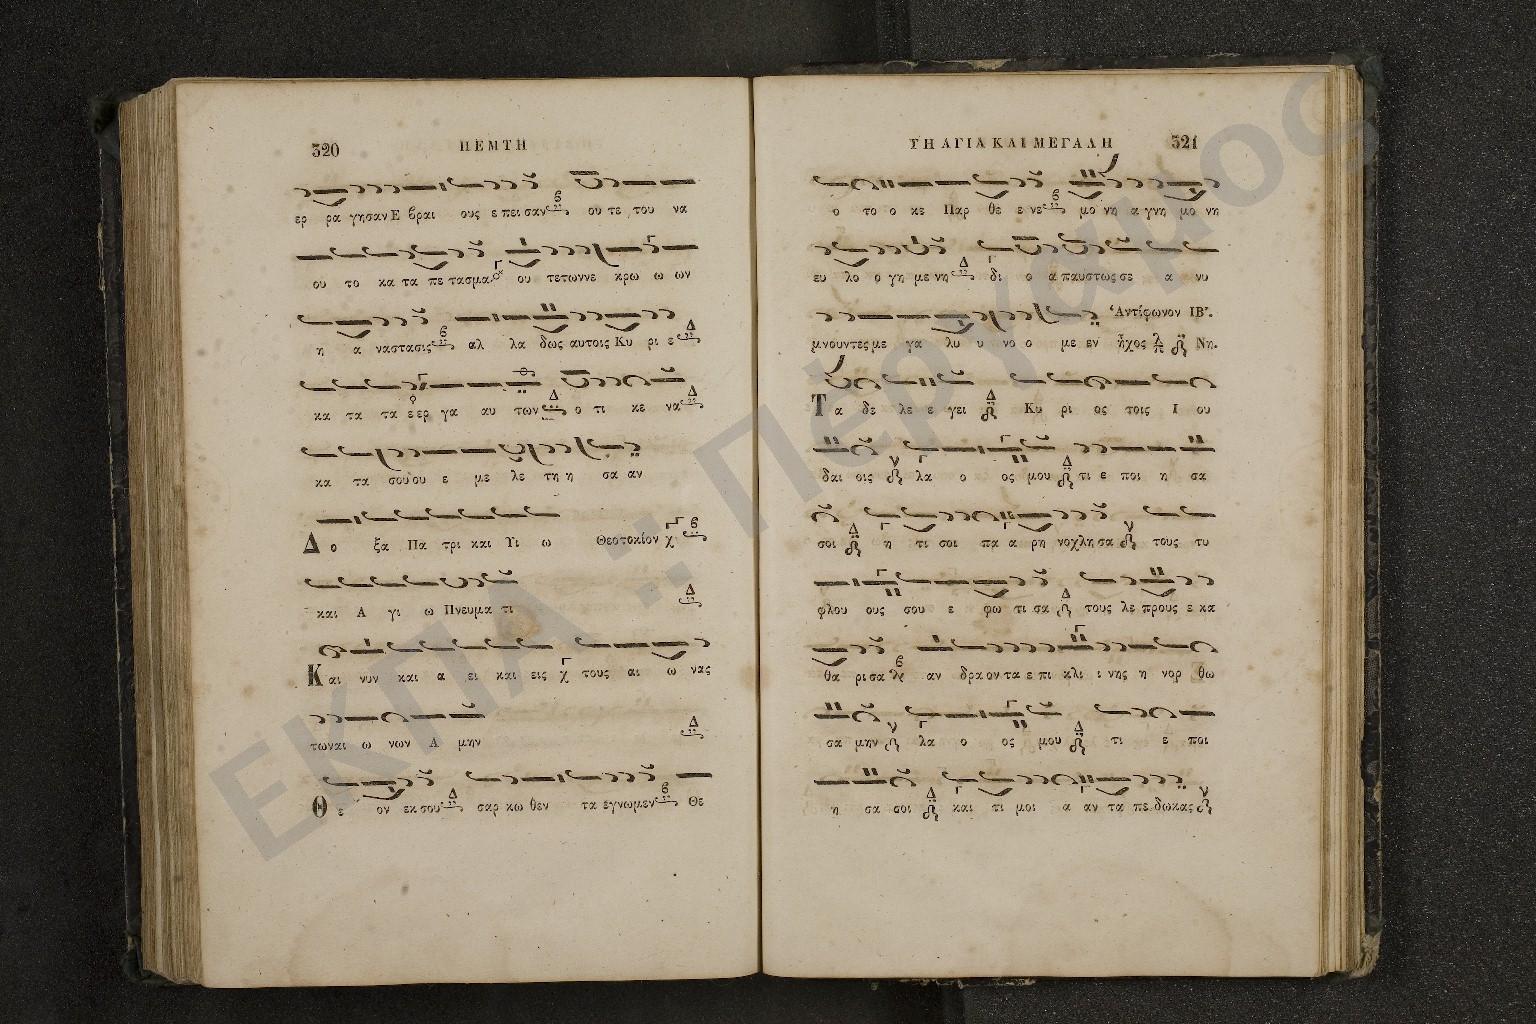 320 ΠΕΜΤΗ
ερ ρα γησαν Ε βραι ους ε πει σαν ου τε του να
ου το κα τα πε τασμα ου τετωννε κρω ω ων
η α ναστασις αλ λα δως αυτοις Κυ ρι ε
κα τα τα ε ερ γα αυ των ο τι κε να
κα τα σου ου ε με λε τη η σα αν
Δο ξα Πα τρι και Υι ω Θεοτοκίον
και Α γι ω Πνευμα τι
Και νυν και α ει και εις τους αι ω νας
τωναι ω νων Α μην
Θε ον εκ σου σαρ κω θεν τα εγνωμεν Θε
ΤΗ ΑΓΙΑ ΚΑΙ ΜΕΓΑΛΗ 321
ο το ο κε Παρ θε ε νε μο νη α γνη μο νη
ευ λο ο γη με νη δι ο α παυστως σε α νυ
Ἀντίφωνον ΙΒ'.
μνουντες με γα λυ υ νο ο με εν ἦχος Νη.
Τα δε λε ε γει Κυ ρι ος τοις Ι ου
δαι οις λα ο ος μου τι ε ποι η σα
σοι η τι σοι πα α ρη νοχλη σα τους τυ
φλου ους σου ε φω τι σα τους λε πρους ε κα
θα ρι σα αν δρα ον τα ε πι κλι ι νης η νορ θω
σα μην λα ο ος μου τι ε ποι
η σα σοι και τι μοι α αν τα πε δωκας
ΕΚΠΑ :: Πέργαμος